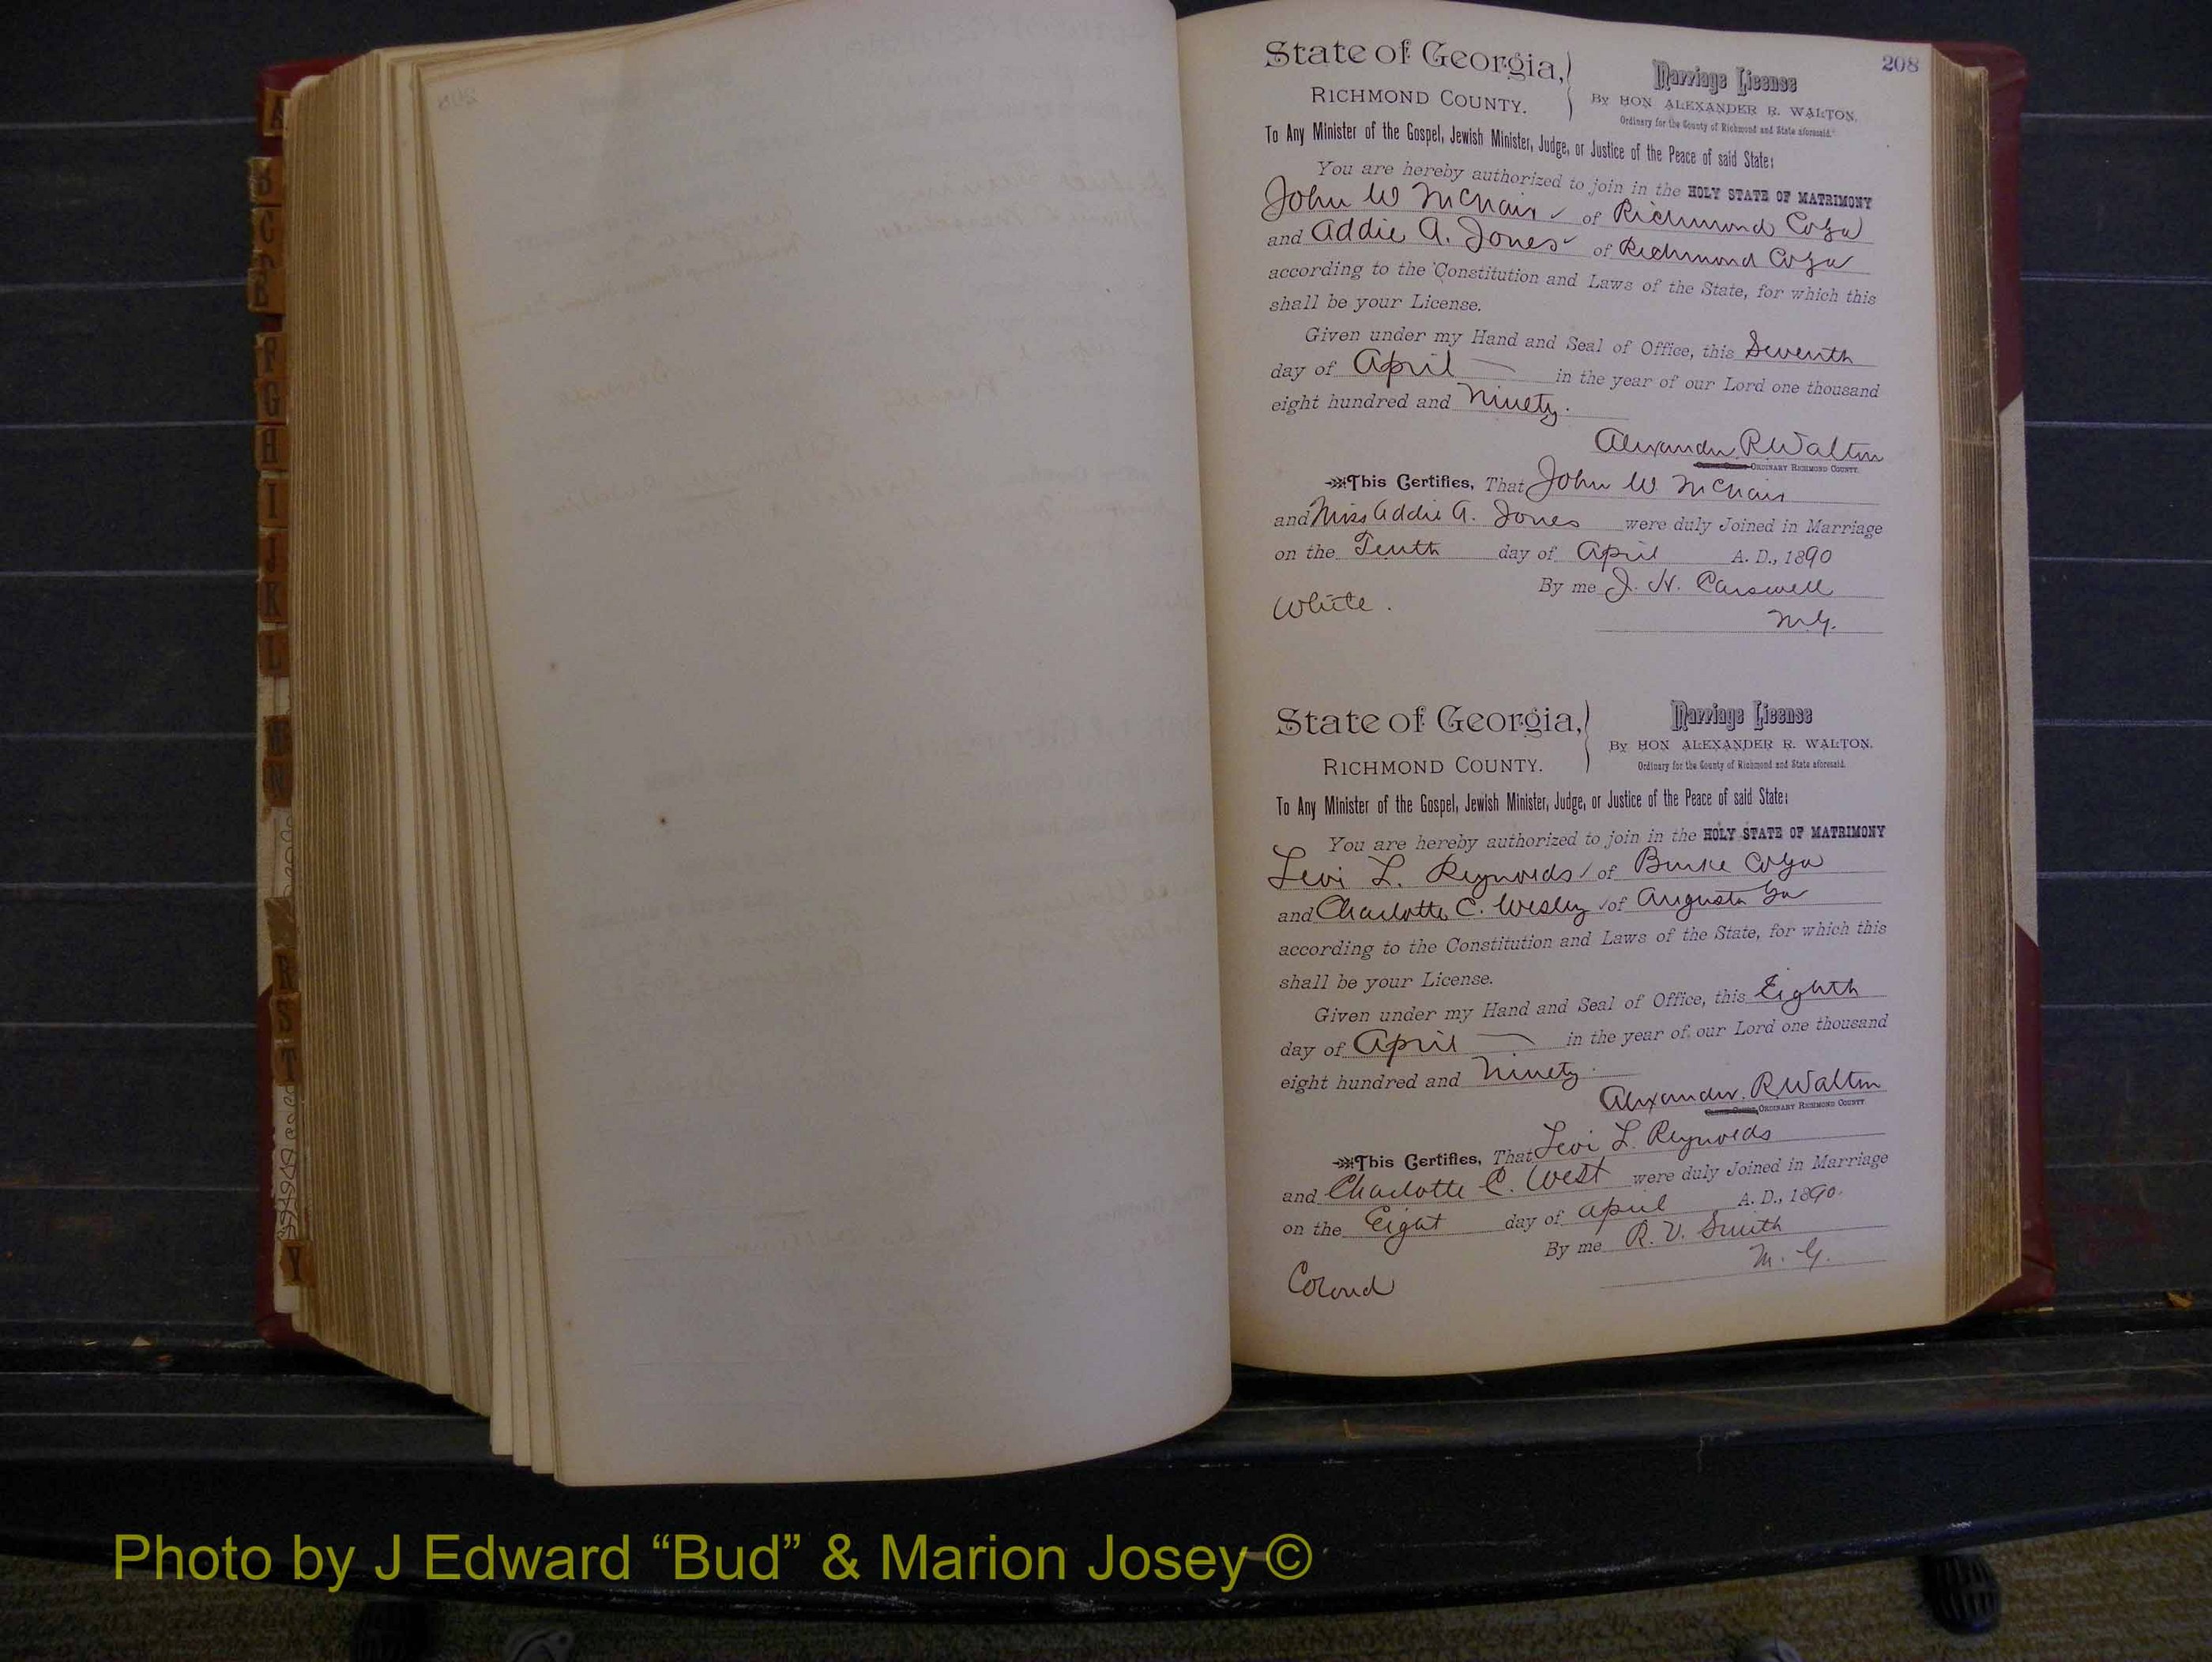 208
State of Georgia,
RICHMOND COUNTY.
Marriage License
By HON ALEXANDER R. WALTON,
Ordinary for the County of Richmond and State aforesaid.
To Any Minister of the Gospel, Jewish Minister, Judge, or Justice of the Peace of said State:
You are hereby authorized to join in the HOLY STATE OF MATRIMONY
John W McNair of Richmond Co Ga
and Addie A. Jones of Richmond Co Ga
according to the Constitution and Laws of the State, for which this
shall be your License.
Given under my Hand and Seal of Office, this Seventh
day of April in the year of our Lord one thousand
eight hundred and Ninety.
Alexander R Walton
ORDINARY RICHMOND COUNTY.
This Certifies, That John W. McNair
and Miss Addie A. Jones were duly Joined in Marriage
on the Tenth day of April A. D., 1890
By me J. H. Carswell
White.
M.G.
State of Georgia,
RICHMOND COUNTY.
Marriage License
By HON ALEXANDER R. WALTON,
Ordinary for the County of Richmond and State aforesaid.
To Any Minister of the Gospel, Jewish Minister, Judge, or Justice of the Peace of said State:
You are hereby authorized to join in the HOLY STATE OF MATRIMONY
Levi L. Reynolds of Burke Co Ga
and Charlotte C. Wesley of Augusta Ga
according to the Constitution and Laws of the State, for which this
shall be your License.
Given under my Hand and Seal of Office, this Eighth
day of April in the year of our Lord one thousand
eight hundred and Ninety.
Alexander R Walton
ORDINARY RICHMOND COUNTY
This Certifies, That Levi L. Reynolds
and Charlotte C. West were duly Joined in Marriage
on the Eight day of April A. D., 1890.
By me R. V. Smith
M. G.
Colored
A
B
C
F
G
H
I
J
K
L
N
R
S
T
Y
Photo by J Edward “Bud” & Marion Josey ©